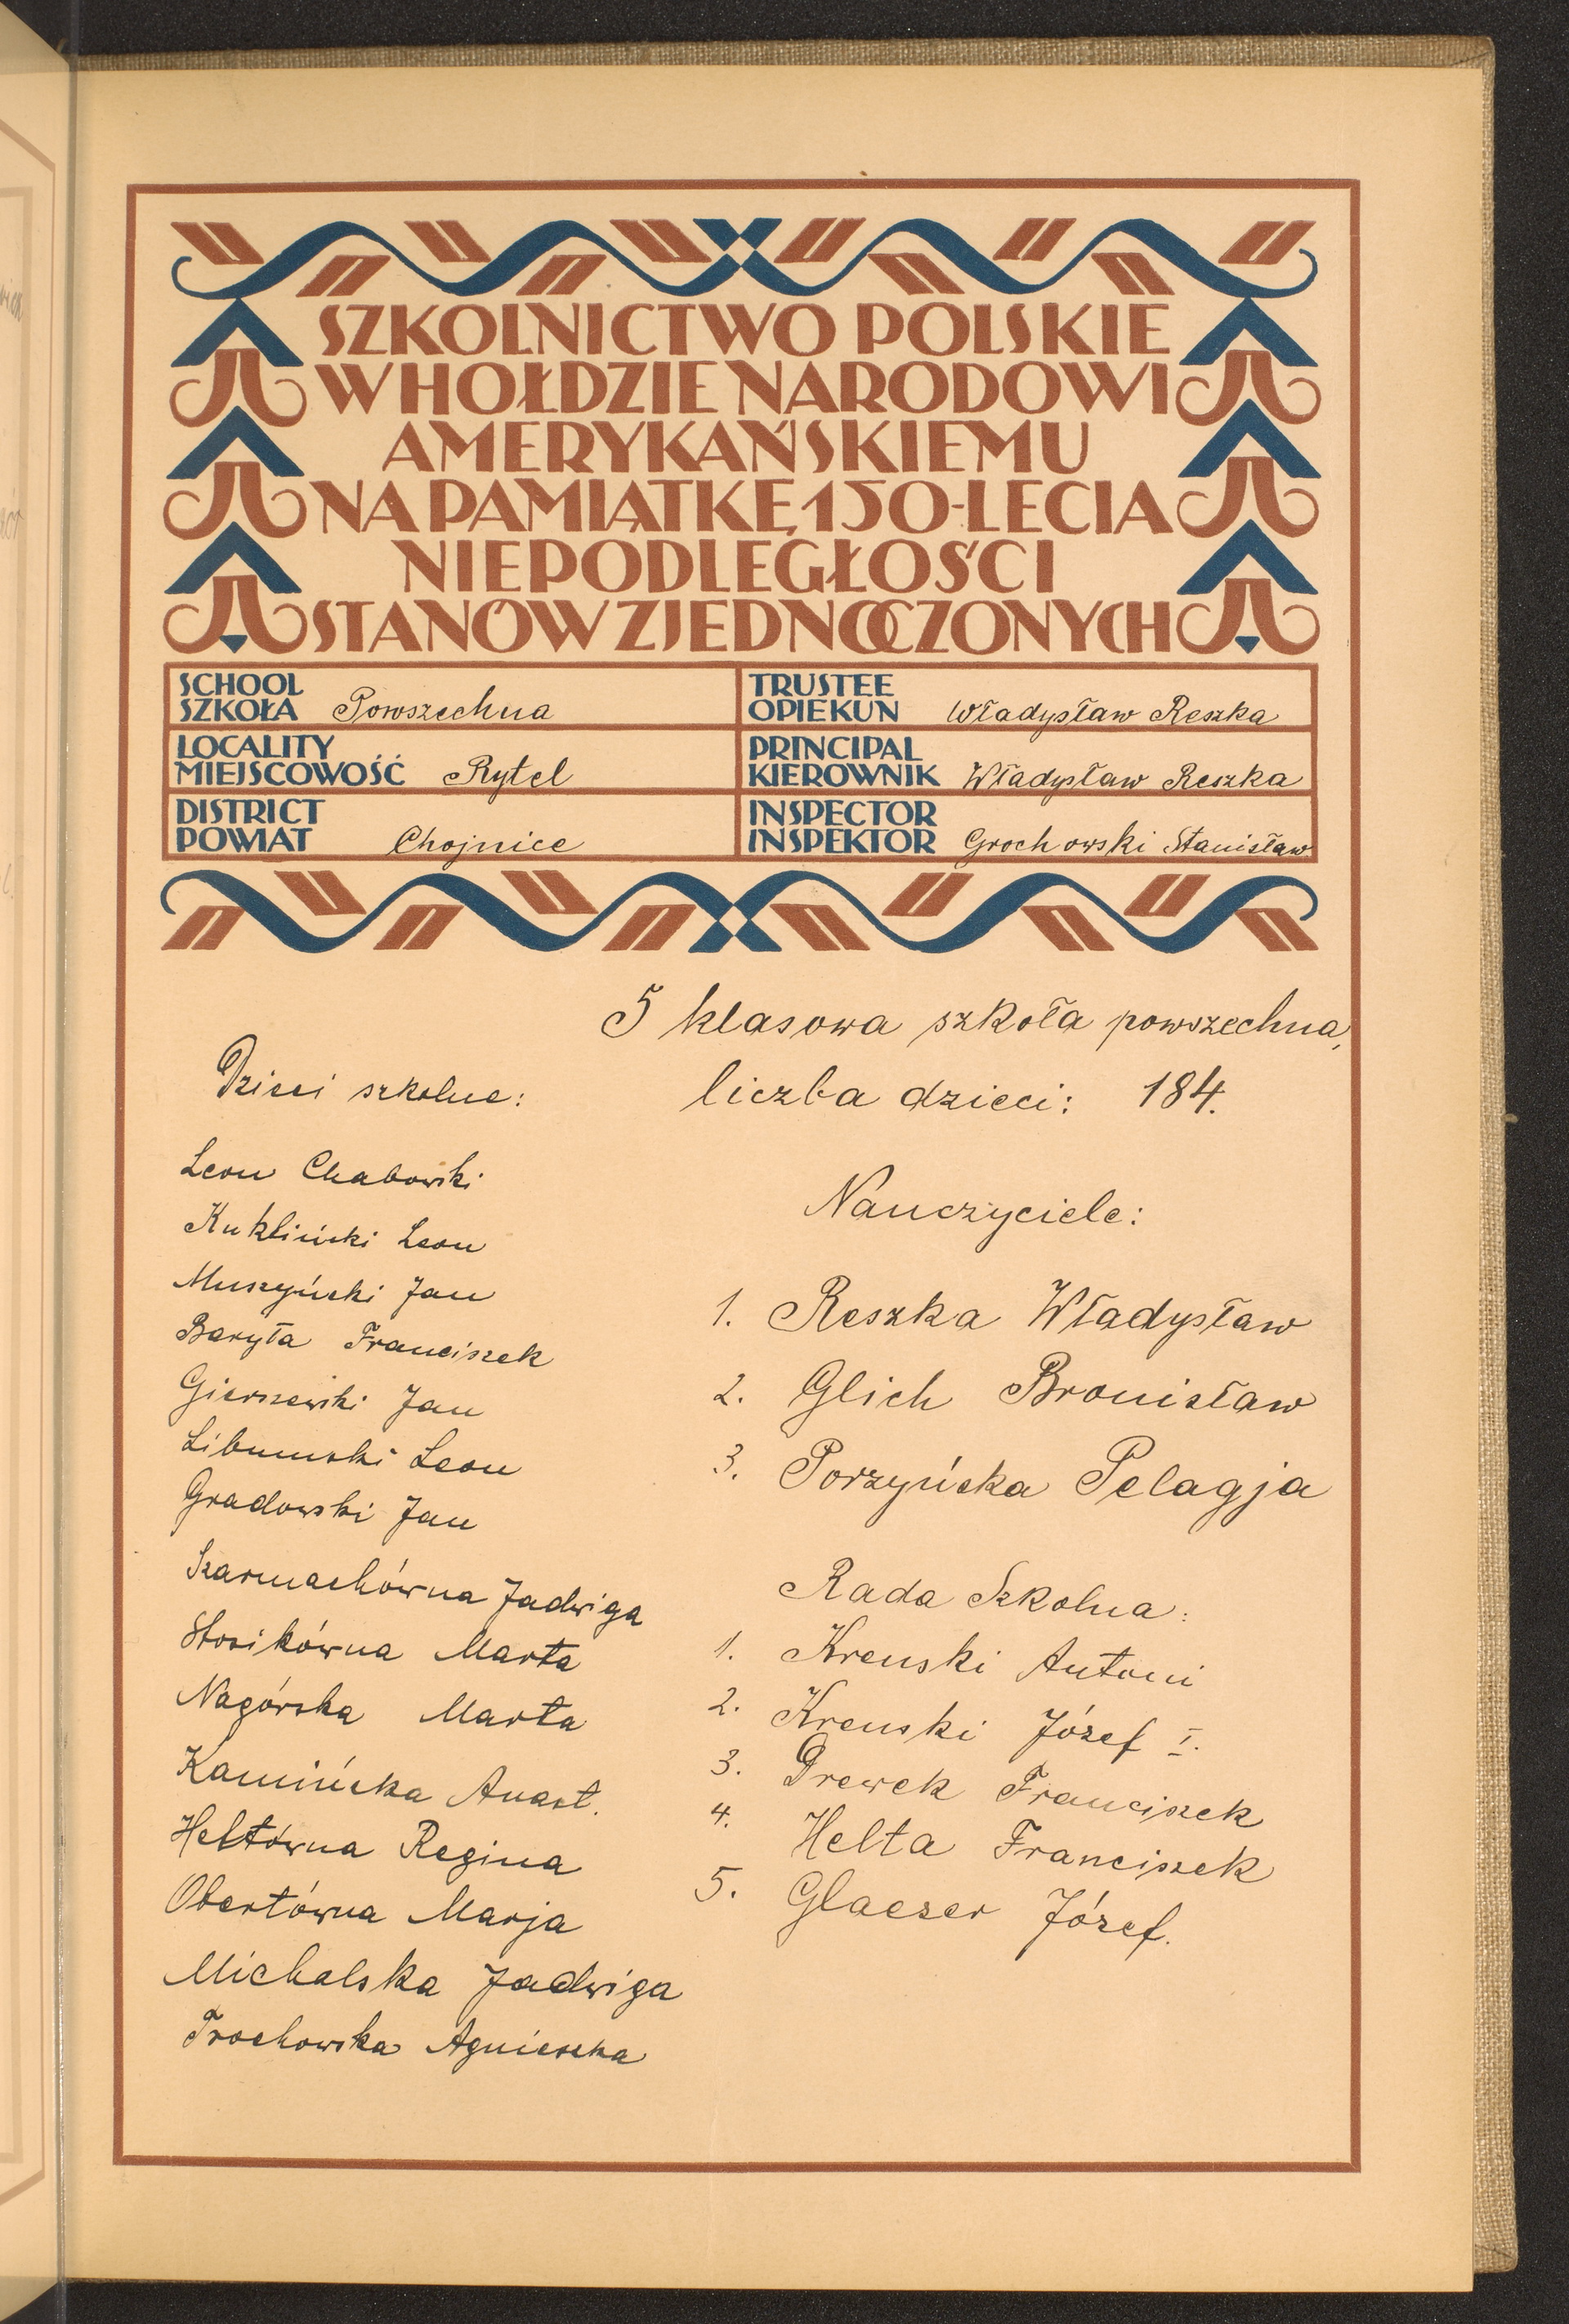 SZKOLNICTWO POLSKIE
W HOŁDZIE NARODOWI
AMERYKAŃSKIEMU
NA PAMIĄTKĘ 150-LECIA
NIEPODLEGŁOŚCI
STANÓW ZJEDNOCZONYCH
SCHOOL
SZKOŁA Powszechna
TRUSTEE
OPIEKUN Władysław Reszka
LOCALITY
MIEJSCOWOŚĆ Rytel
PRINCIPAL
KIEROWNIK Władysław Reszka
DISTRICT
POWIAT Chojnice
INSPECTOR
INSPEKTOR Grochowski Stanisław
5 klasowa szkoła powszechna,
liczba dzieci: 184.
Dzieci szkolne:
Leon Chabowski
Kukliński Leon
Muszyński Jan
Baryła Franciszek
Gierszewski Jan
Libumski Leon
Gradowski Jan
Szarmachówna Jadwiga
Stosikówna Marta
Nagórska Marta
Kamińska Anast.
Heltówna Regina
Obertówna Marja
Michalska Jadwiga
Trochowska Agnieszka
Nauczyciele:
1. Reszka Władysław
2. Glich Bronisław
3. Porzyńska Pelagja
Rada Szkolna:
1. Krenski Antoni
2. Krenski Józef I.
3. Drewek Franciszek
4. Helta Franciszek
5. Glaezer Józef.